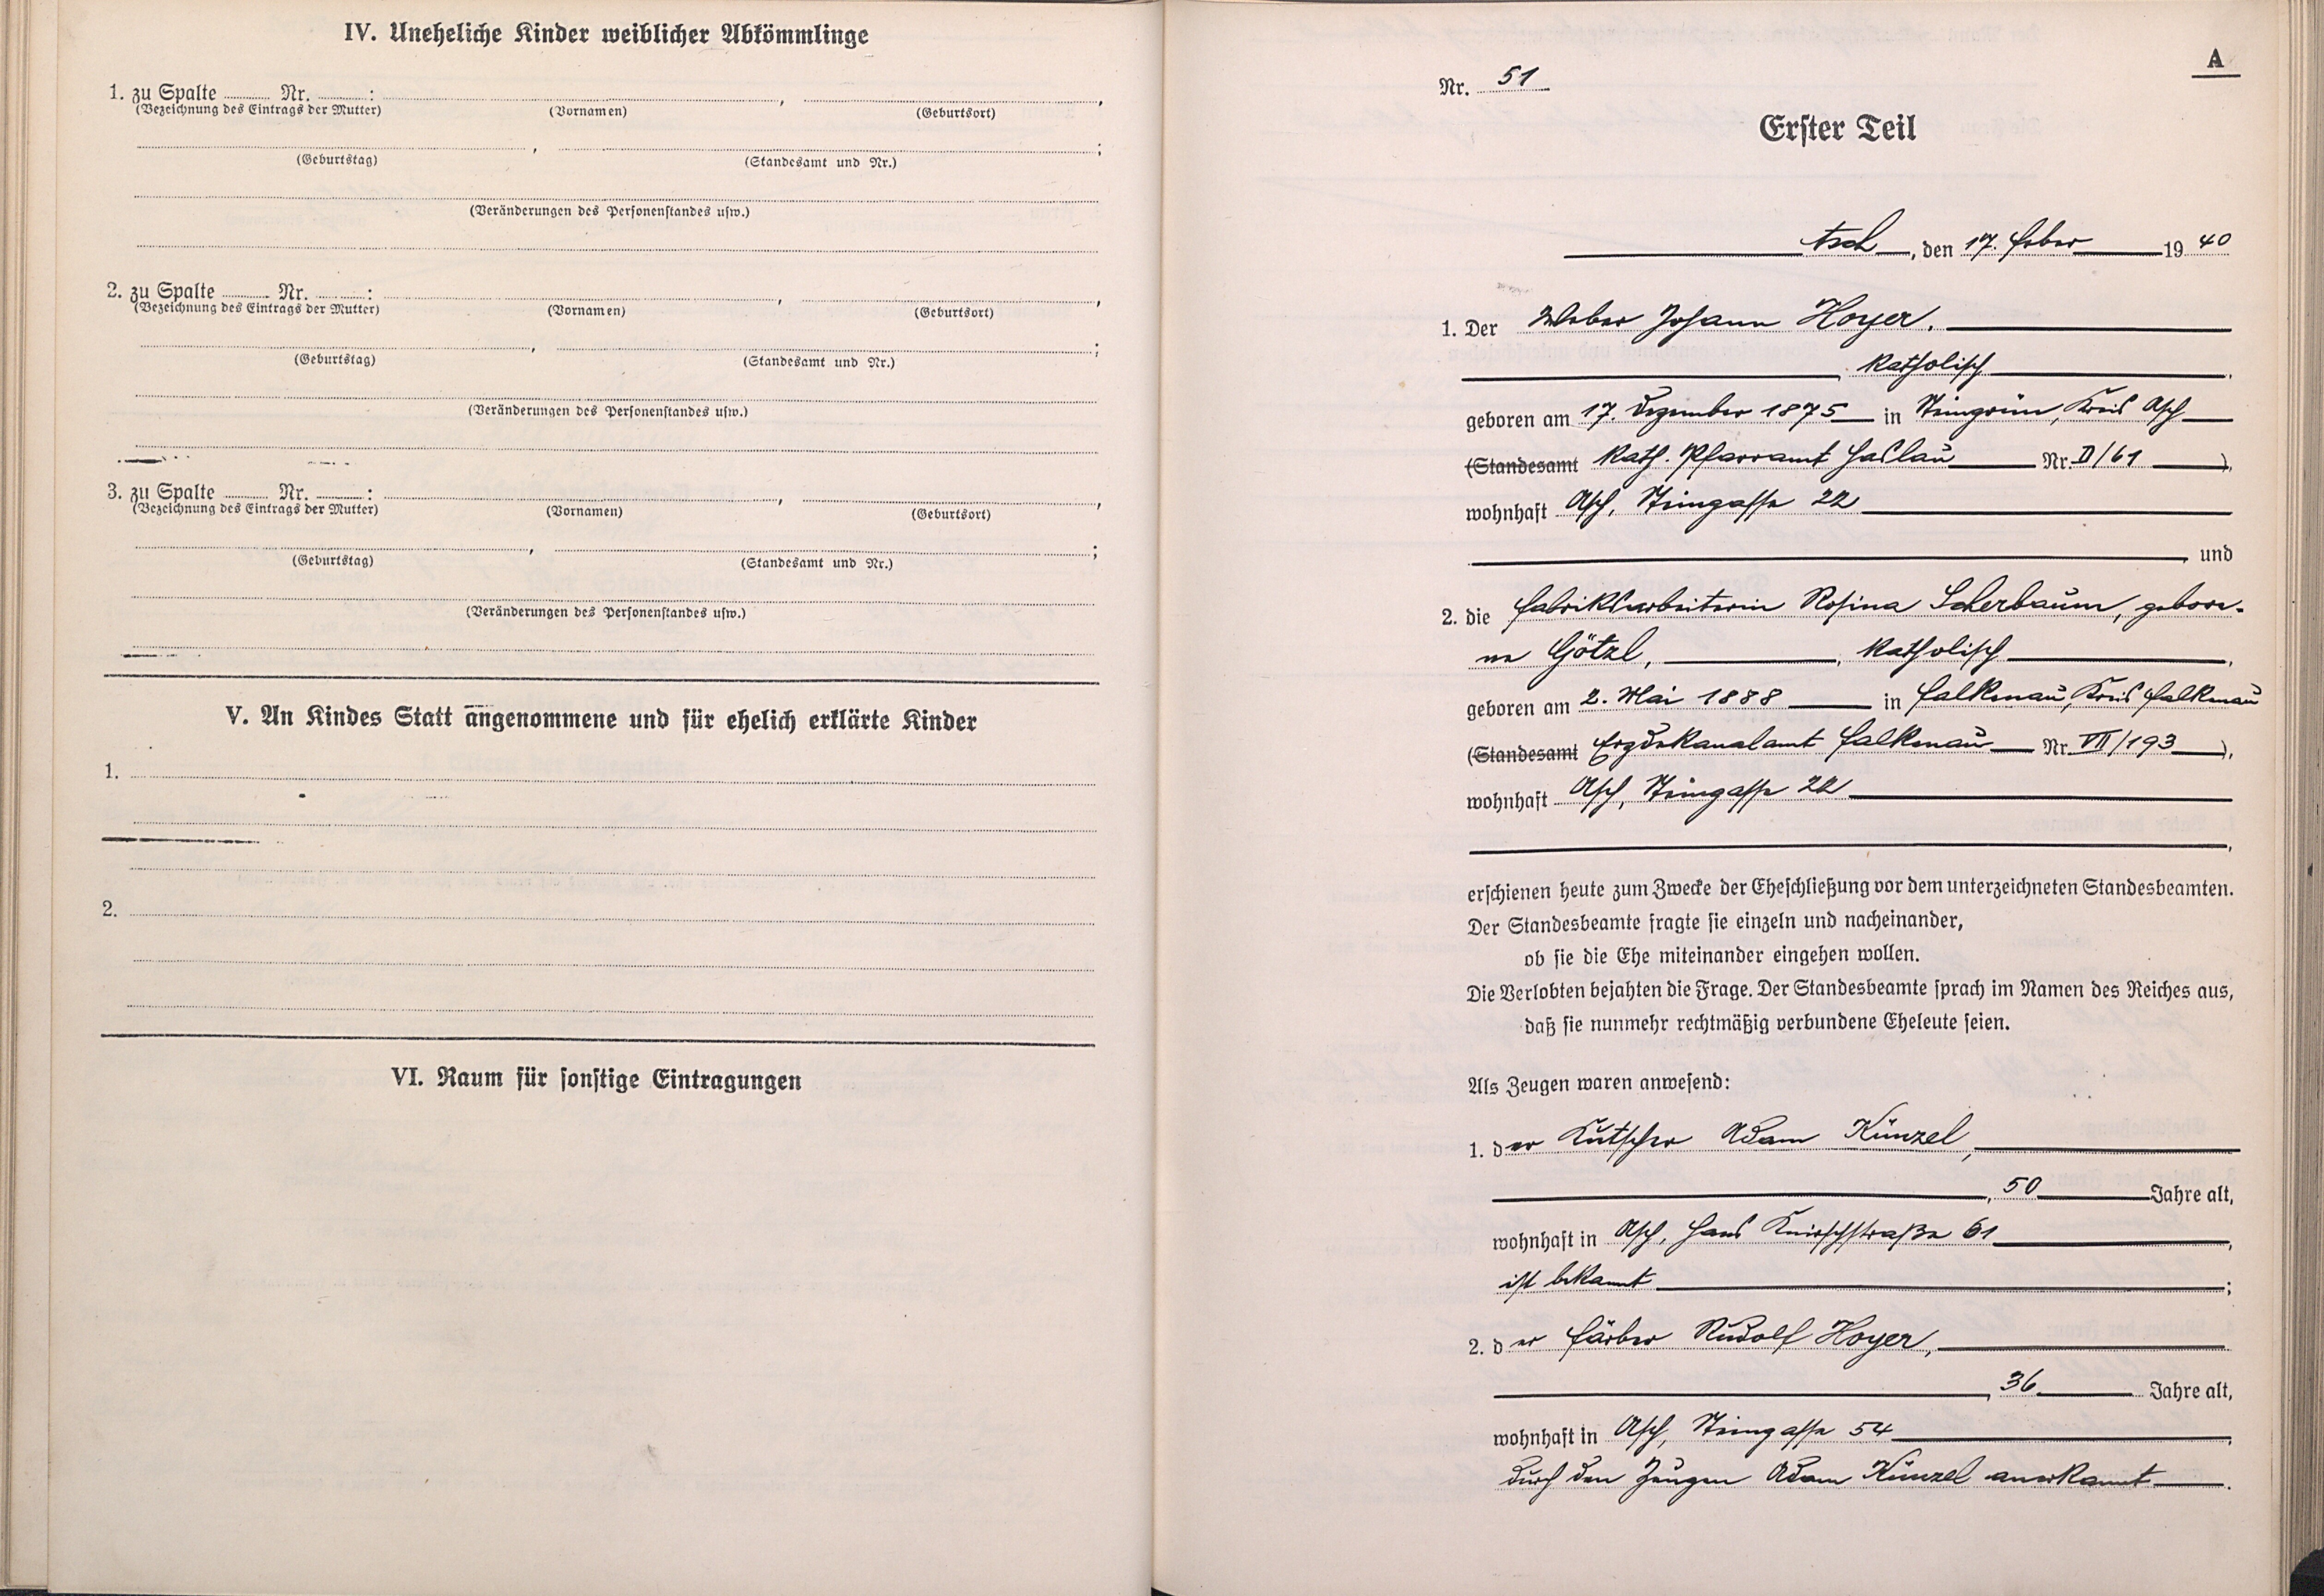 IV. Uneheliche Kinder weiblicher Abkömmlinge
1. zu Spalte ........ Nr. ........ : ........ , ........ ,
(Bezeichnung des Eintrags der Mutter) (Vornamen) (Geburtsort)
........ , ........ ;
(Geburtstag) (Standesamt und Nr.)
(Veränderungen des Personenstandes usw.)
2. zu Spalte ........ Nr. ........ : ........ , ........ ,
(Bezeichnung des Eintrags der Mutter) (Vornamen) (Geburtsort)
........ , ........ ;
(Geburtstag) (Standesamt und Nr.)
(Veränderungen des Personenstandes usw.)
3. zu Spalte ........ Nr. ........ : ........ , ........ ,
(Bezeichnung des Eintrags der Mutter) (Vornamen) (Geburtsort)
........ , ........ ;
(Geburtstag) (Standesamt und Nr.)
(Veränderungen des Personenstandes usw.)
V. An Kindes Statt angenommene und für ehelich erklärte Kinder
1.
2.
VI. Raum für sonstige Eintragungen
A
Nr. 51
Erster Teil
Asch, den 17. Feber 19 40
1. Der Weber Johann Hoyer,
, katholisch,
geboren am 17. Dezember 1875 in Steingrün, Kreis Asch
(Standesamt Kath. Pfarramt Haslau Nr. II/61),
wohnhaft Asch, Steingasse 22
, und
2. die Fabriksarbeiterin Rosina Scherbaum, gebore-
ne Götzl, , katholisch,
geboren am 2. Mai 1888 in Falkenau, Kreis Falkenau
(Standesamt Erzdekanalamt Falkenau Nr. VII/193),
wohnhaft Asch, Steingasse 22
,
erschienen heute zum Zwecke der Eheschließung vor dem unterzeichneten Standesbeamten.
Der Standesbeamte fragte sie einzeln und nacheinander,
ob sie die Ehe miteinander eingehen wollen.
Die Verlobten bejahten die Frage. Der Standesbeamte sprach im Namen des Reiches aus,
daß sie nunmehr rechtmäßig verbundene Eheleute seien.
Als Zeugen waren anwesend:
1. der Kutscher Adam Künzel,
, 50 Jahre alt,
wohnhaft in Asch, Hans Knirschstraße 61,
ist bekannt ;
2. der Färber Rudolf Hoyer,
, 36 Jahre alt,
wohnhaft in Asch, Steingasse 54,
durch den Zeugen Adam Künzel anerkannt.